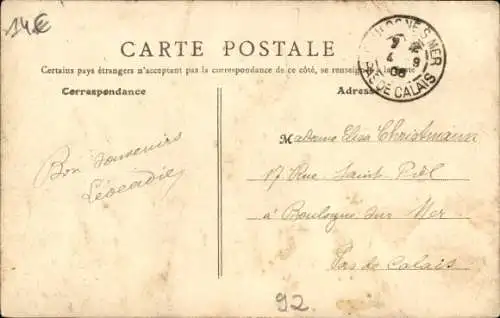 14 €
CARTE POSTALE
Certains pays étrangers n'acceptent pas la correspondance de ce côté, se renseigner à la poste
Correspondance
Adresse
BOULOGNE-S-MER
4 9
08
PAS DE CALAIS
Bon Souvenirs
Léocadie
Madame Elisa Christmann
17 Rue Saint
à Boulogne sur Mer
Pas de Calais
92.